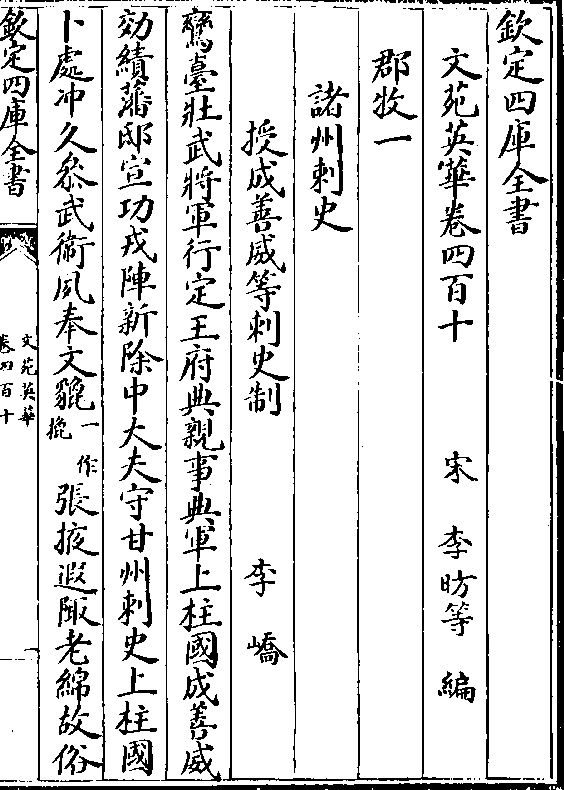 欽定四庫全書
文苑英華卷四百十
宋 李昉等 編
郡牧一
諸州刺史
授成善威等刺史制
李嶠
鸞臺壯武將軍行定王府典親事典軍上柱國成善威
効績藩邸宣功戎陣新除中大夫守甘州刺史上柱國
卜處冲久叅武衞夙奉文貔一作㧢張掖遐陬老綿故俗
欽定四庫全書
文苑英華
卷四百十